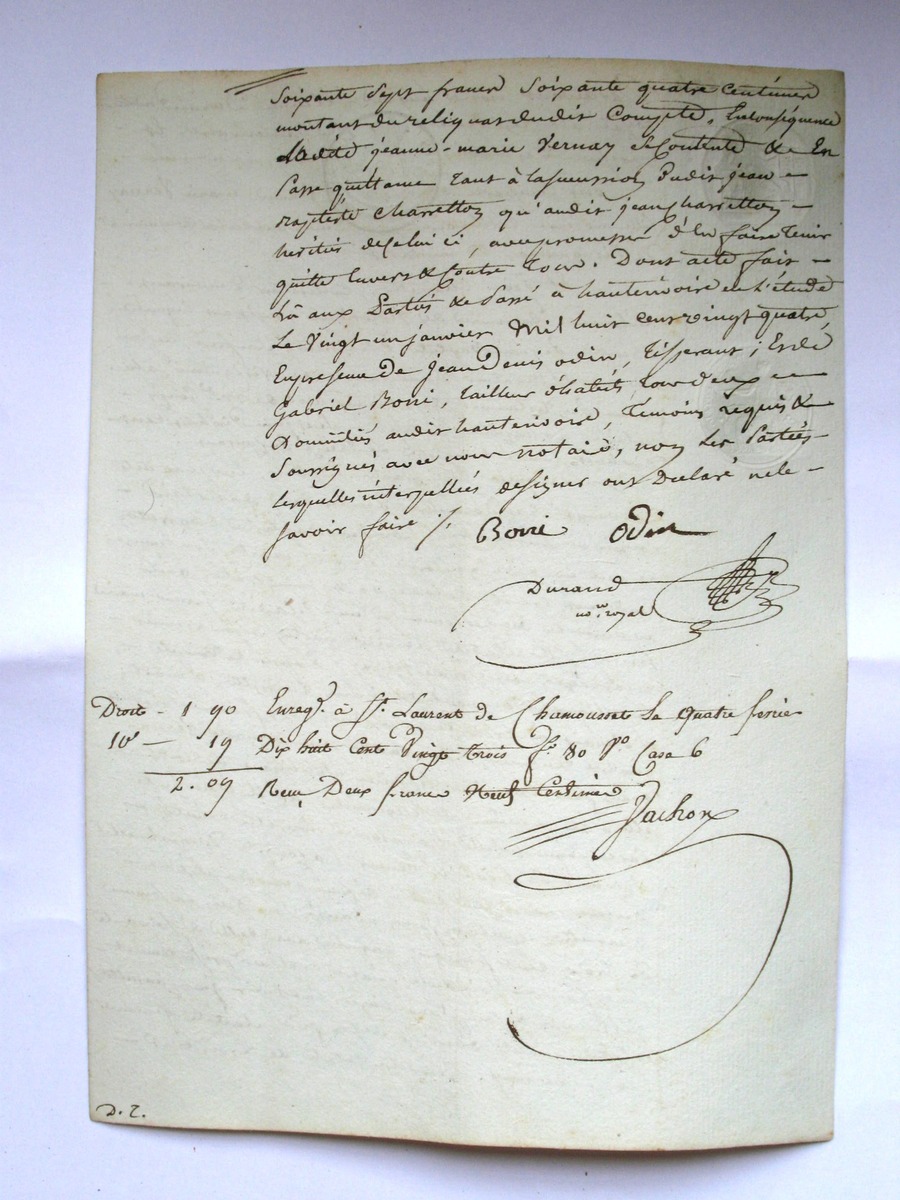 Soixante Sept francs Soixante quatre Centimes
montant du reliquat dudit Compte, En conséquence
Ladite jeanne-marie Vernay Se Contente & En
Passe quittance tant à la Succession dudit jean
Baptiste Chassetton qu'audit jean Chassetton
héritiés de Celui ci, avec promesse d'En faire tenir
quitte Envers & Contre tous. Dont acte fait
Lû aux Partiés & Passé à hauterivoire en L'étude
Le Vingt un janvier Mil huit cent vingt quatre,
En présence De jean Denis odin, tisserant; Et de
Gabriel Boiri, tailleur d'habits tous deux
Domiciliés audit hauterivoire, Temoins requis &
Soussignés avec nous notaire, non Les Partiés
Lesquelles interpellées de Signer ont Declaré ne le
Savoir faire ./.
Boiri Odin
Durand
no.re royal
Droit - 1 90 Enreg.é à St. Laurent de Chamousset Le quatre fevrier
10e - 19 Dix huit Cent Vingt trois f.o 80 V.o Case 6
2. 09 Reçu Deux francs Neuf Centimes
Vachon
D. T.